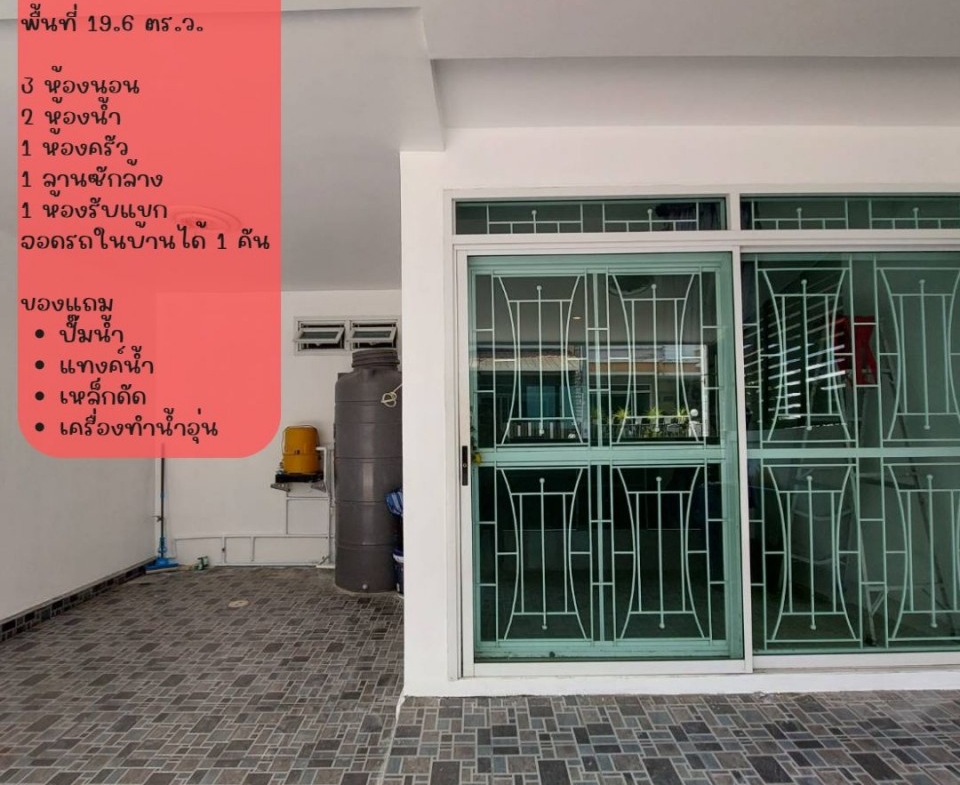 พื้นที่ 19.6 ตร.ว.
3 ห้องนอน
2 ห้องน้ำ
1 ห้องครัว
1 ลานซักล้าง
1 ห้องรับแขก
จอดรถในบ้านได้ 1 คัน
ของแถม
• ปั๊มน้ำ
• แทงค์น้ำ
• เหล็กดัด
• เครื่องทำน้ำอุ่น